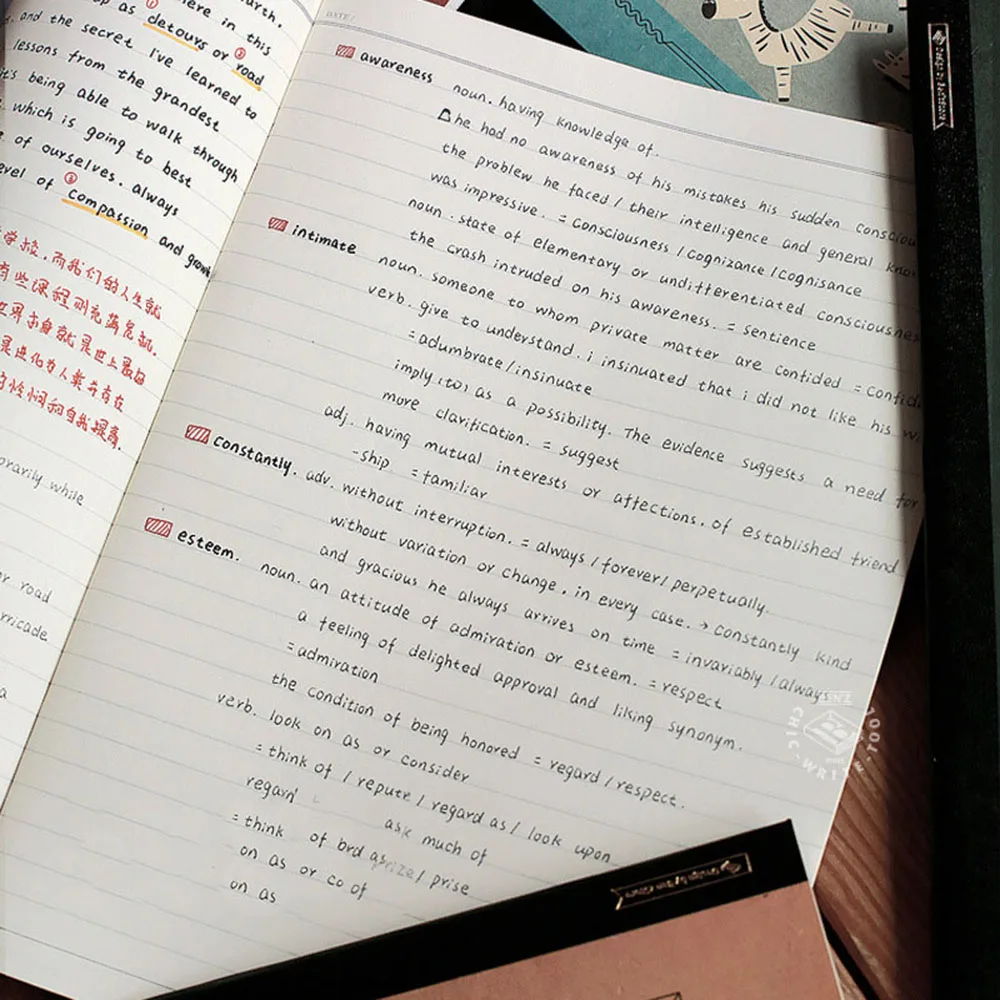 arth,
here in this
p as detours or road
and the secret I've learned to
lessons from the grandest
it's being able to walk through
which is going to best
e of ourselves. always
evel of compassion and growth
学校,而我们的人生就
有些课程则充满危机.
世界本身就是世上最
是进化为人类并存在
怜悯和自我提高.
orarily while
or road
rricade
a
DATE /
awareness
noun. having knowledge of.
he had no awareness of his mistakes his sudden consciou
the problem he faced / their intelligence and general know
was impressive. = consciousness / cognizance / cognisance
noun. state of elementary or undifferentiated consciousness
the crash intruded on his awareness. = sentience
intimate
noun. someone to whom private matter are confided = confid
verb. give to understand. i insinuated that i did not like his wi
= adumbrate/insinuate
imply (to) as a possibility. The evidence suggests a need for
more clarification. = suggest
adj. having mutual interests or affections. of established friend
-ship = familiar
constantly. adv. without interruption. = always / forever / perpetually.
without variation or change, in every case. → constantly kind
and gracious he always arrives on time = invariably / always
esteem.
noun. an attitude of admiration or esteem. = respect
a feeling of delighted approval and liking synonym.
= admiration
the condition of being honored = regard / respect.
verb. look on as or consider
= think of / repute / regard as / look upon
regard ask much of
= think of brd as prize / prise
on as or co of
on as
CHIC - WRITE - TOOL